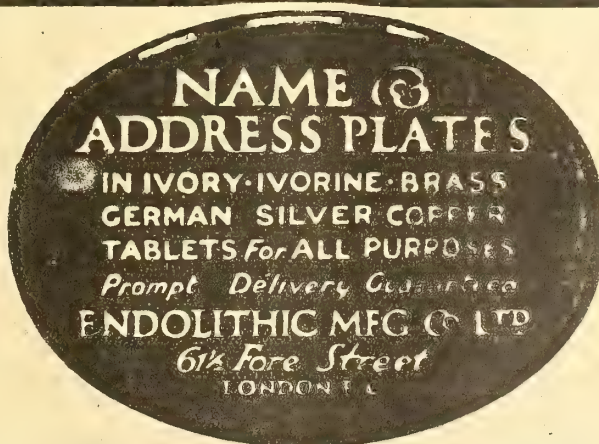 NAME &
ADDRESS PLATES
IN IVORY·IVORINE·BRASS
GERMAN SILVER COPPER
TABLETS For ALL PURPOSES
Prompt Delivery Guaranteed
ENDOLITHIC MFG Co LTD
61½ Fore Street
LONDON E.C